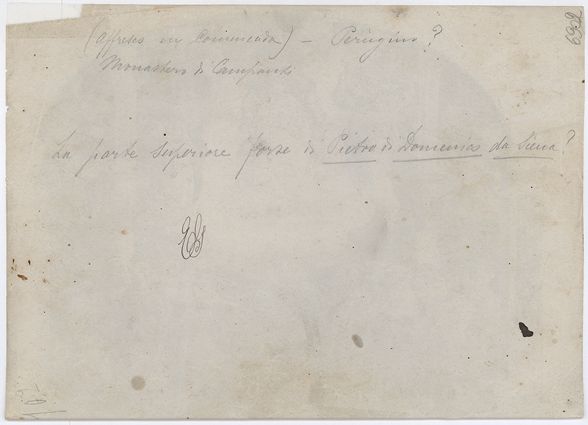 (Affresco in Commenda) – Perugino?
Monastero di Campansi
La parte superiore forse di Pietro di Domenico da Siena?
6902